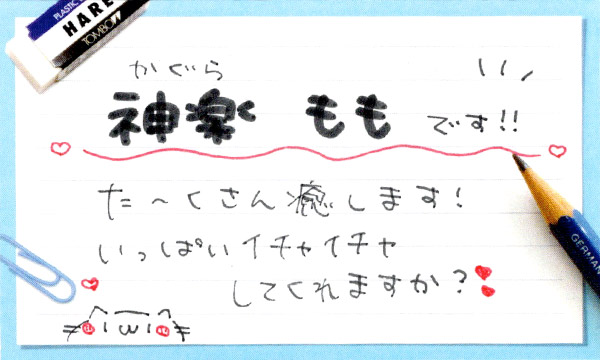 PLASTIC
HARE
TOMBOW
かぐら
神楽 もも です!!
た〜くさん癒します!
いっぱいイチャイチャ
してくれますか?
GERMAN